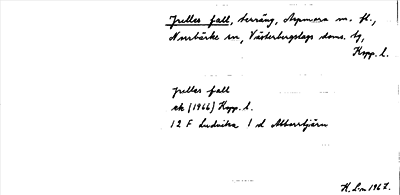 Jrelles fall, terräng, Aspmora m. fl.,
Norrbärke sn, Västerbergslags doms. tg,
Kopp. l.
Jrelles fall
ek (1966) Kopp. l.
12 F Ludvika 1 d Abborrtjärn
H. Lm 1967.